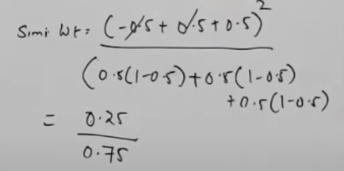 Simi Wt = (-0.5 + 0.5 + 0.5)²
(0.5(1-0.5) + 0.5(1-0.5)
+ 0.5(1-0.5)
= 0.25
0.75